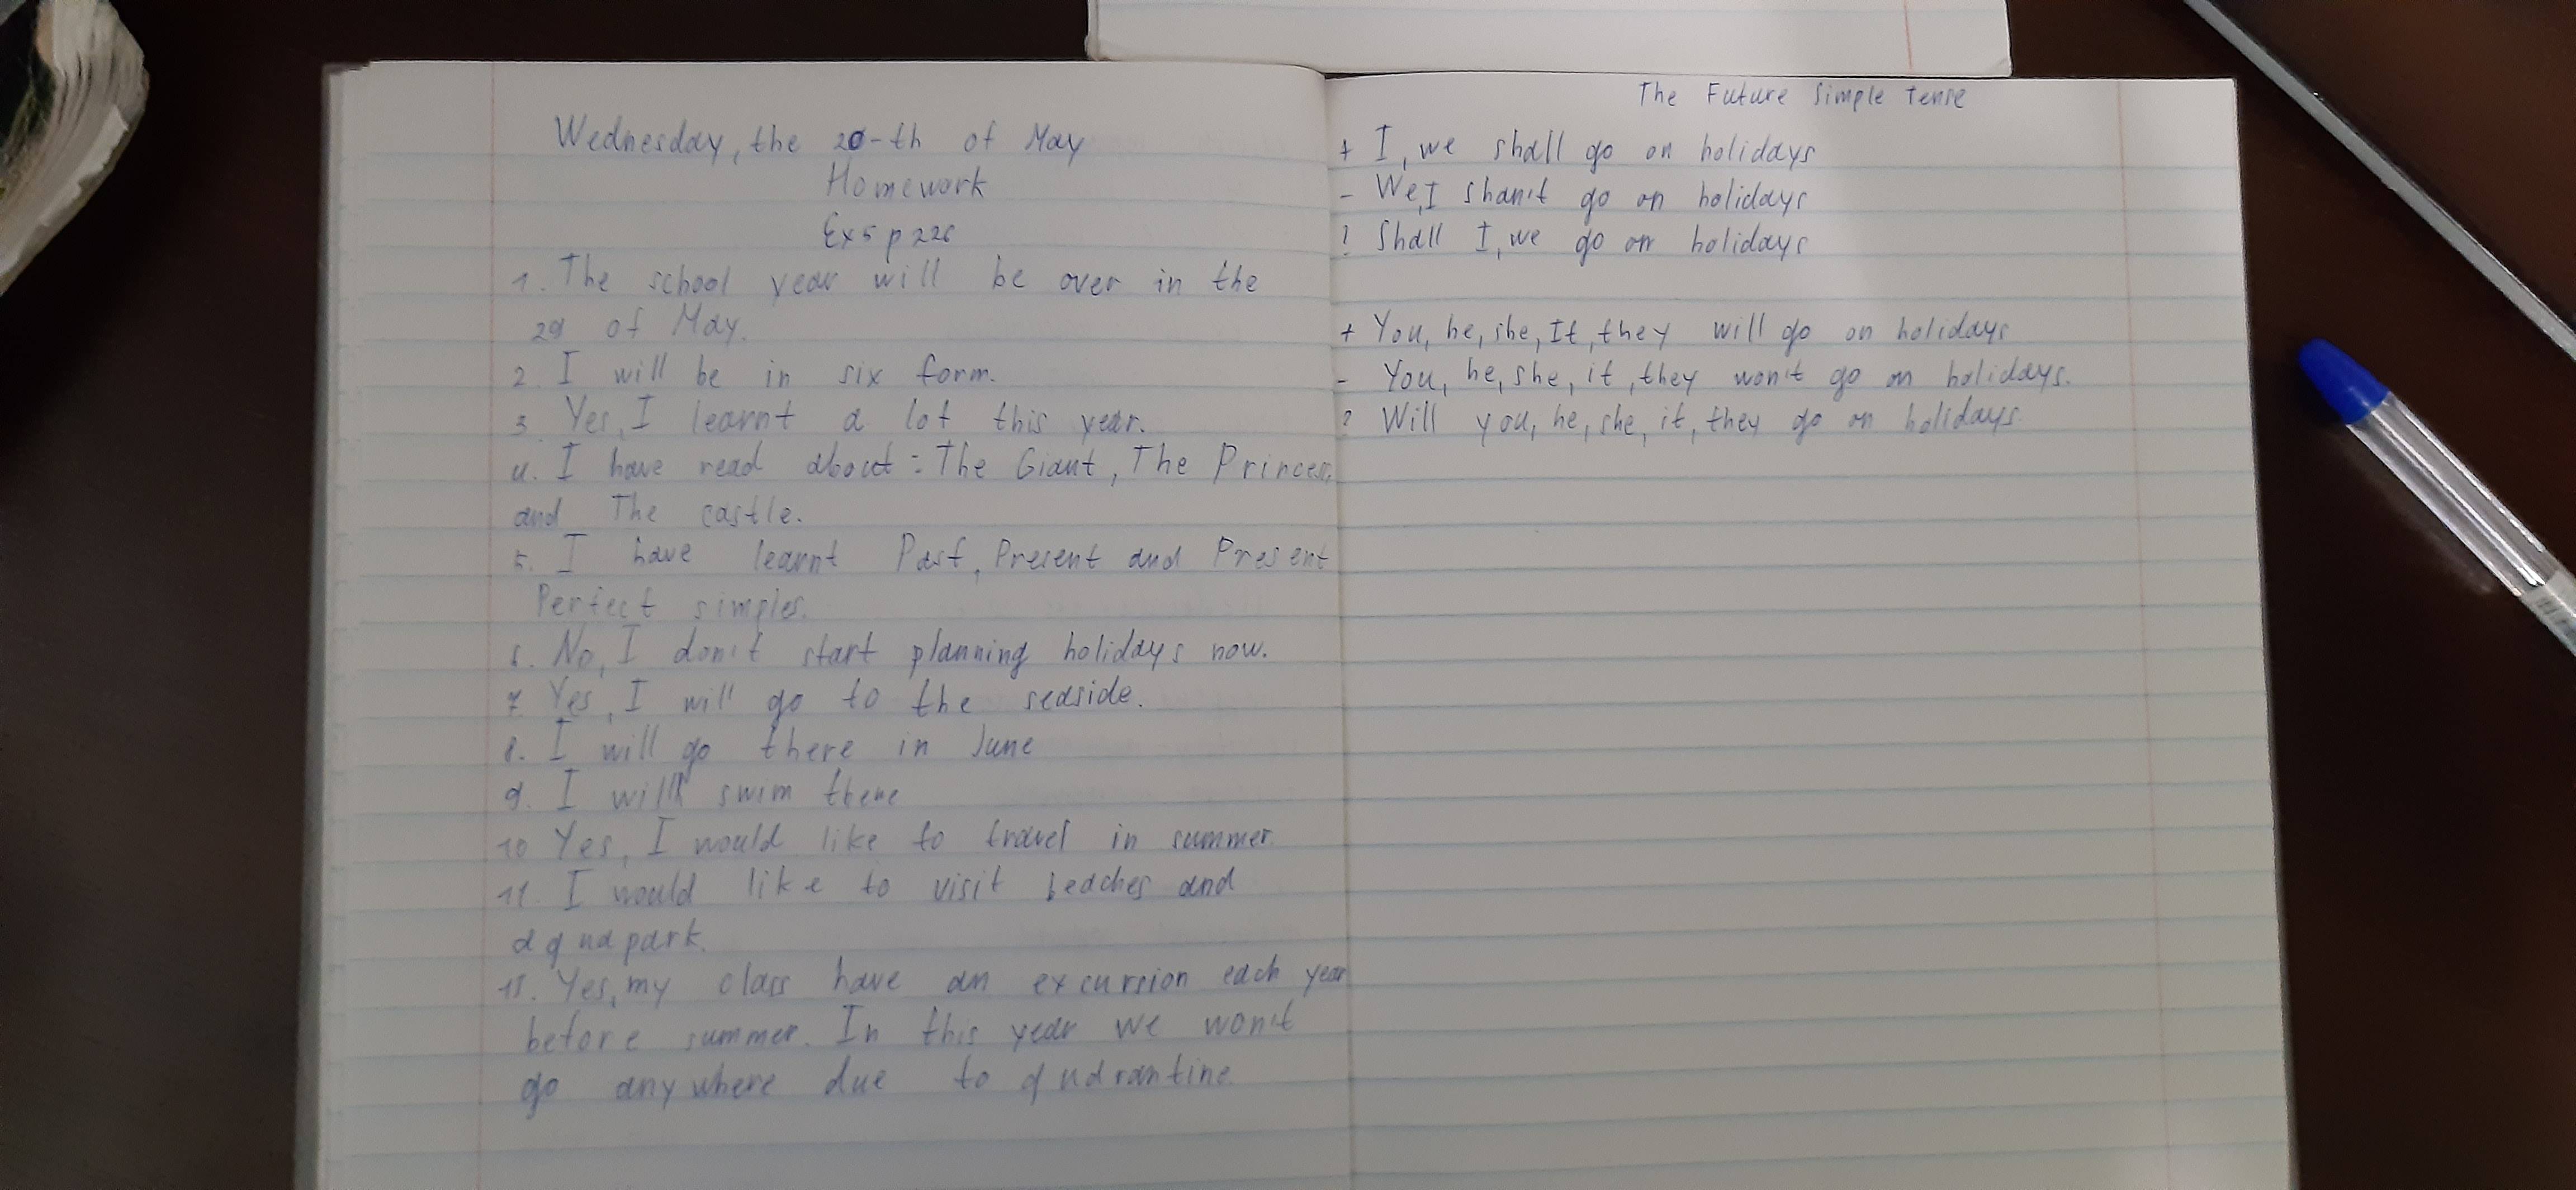 Wednesday, the 20-th of May
Homework
Ex 5 p 226
1. The school year will be over in the
29 of May.
2. I will be in six form.
3. Yes, I learnt a lot this year.
4. I have read about: The Giant, The Princess,
and The castle.
5. I have learnt Past, Present and Present
Perfect simples.
6. No, I don't start planning holidays now.
7. Yes, I will go to the seaside.
8. I will go there in June
9. I will swim there
10 Yes, I would like to travel in summer
11. I would like to visit beaches and
aquapark.
15. Yes, my class have an excursion each year
before summer. In this year we won't
go anywhere due to quarantine.
The Future Simple Tense
+ I, we shall go on holidays
- We, I shan't go on holidays
? Shall I, we go on holidays
+ You, he, she, It, they will go on holidays
- You, he, she, it, they won't go on holidays.
? Will you, he, she, it, they go on holidays